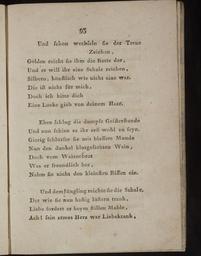 93
Und schon wechseln sie der Treue
Zeichen,
Golden reicht sie ihm die Kette dar,
Und er will ihr eine Schale reichen,
Silbern, künstlich wie nicht eine war.
Die ist nicht für mich,
Doch ich bitte dich
Eine Locke gieb von deinem Haar.
Eben schlug die dumpfe Geisterstunde
Und nun schien es ihr erst wohl zu seyn.
Gierig schlürfte sie mit blassem Munde
Nun den dunkel blutgefärbten Wein,
Doch vom Waizenbrot
Was er freundlich bot,
Nahm sie nicht den kleinsten Bissen ein.
Und dem Jüngling reichte sie die Schale,
Der wie sie nun hastig lüstern trank,
Liebe fordert er beym stillen Mahle,
Ach! sein armes Herz war Liebekrank,